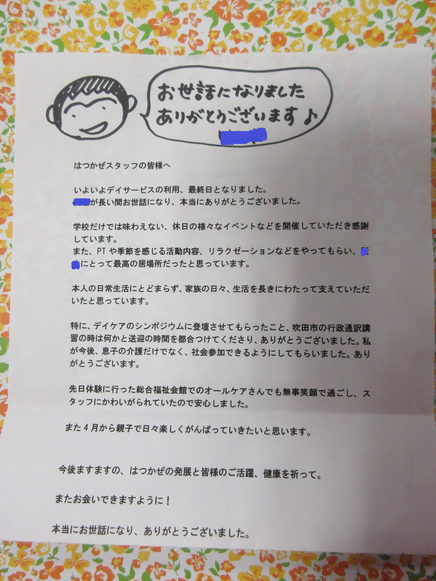 お世話になりました
ありがとうございます♪
はつかぜスタッフの皆様へ
いよいよデイサービスの利用、最終日となりました。
が長い間お世話になり、本当にありがとうございました。
学校だけでは味わえない、休日の様々なイベントなどを開催していただき感謝
しています。
また、PTや季節を感じる活動内容、リラクゼーションなどをやってもらい、
にとって最高の居場所だったと思っています。
本人の日常生活にとどまらず、家族の日々、生活を長きにわたって支えていただ
いたと思っています。
特に、デイケアのシンポジウムに登壇させてもらったこと、吹田市の行政通訳講
習の時は何かと送迎の時間を都合つけてくださり、ありがとうございました。私
が今後、息子の介護だけでなく、社会参加できるようにしてもらいました。あり
がとうございます。
先日体験に行った総合福祉会館でのオールケアさんでも無事笑顔で過ごし、ス
タッフにかわいがられていたので安心しました。
また4月から親子で日々楽しくがんばっていきたいと思います。
今後ますますの、はつかぜの発展と皆様のご活躍、健康を祈って。
またお会いできますように！
本当にお世話になり、ありがとうございました。